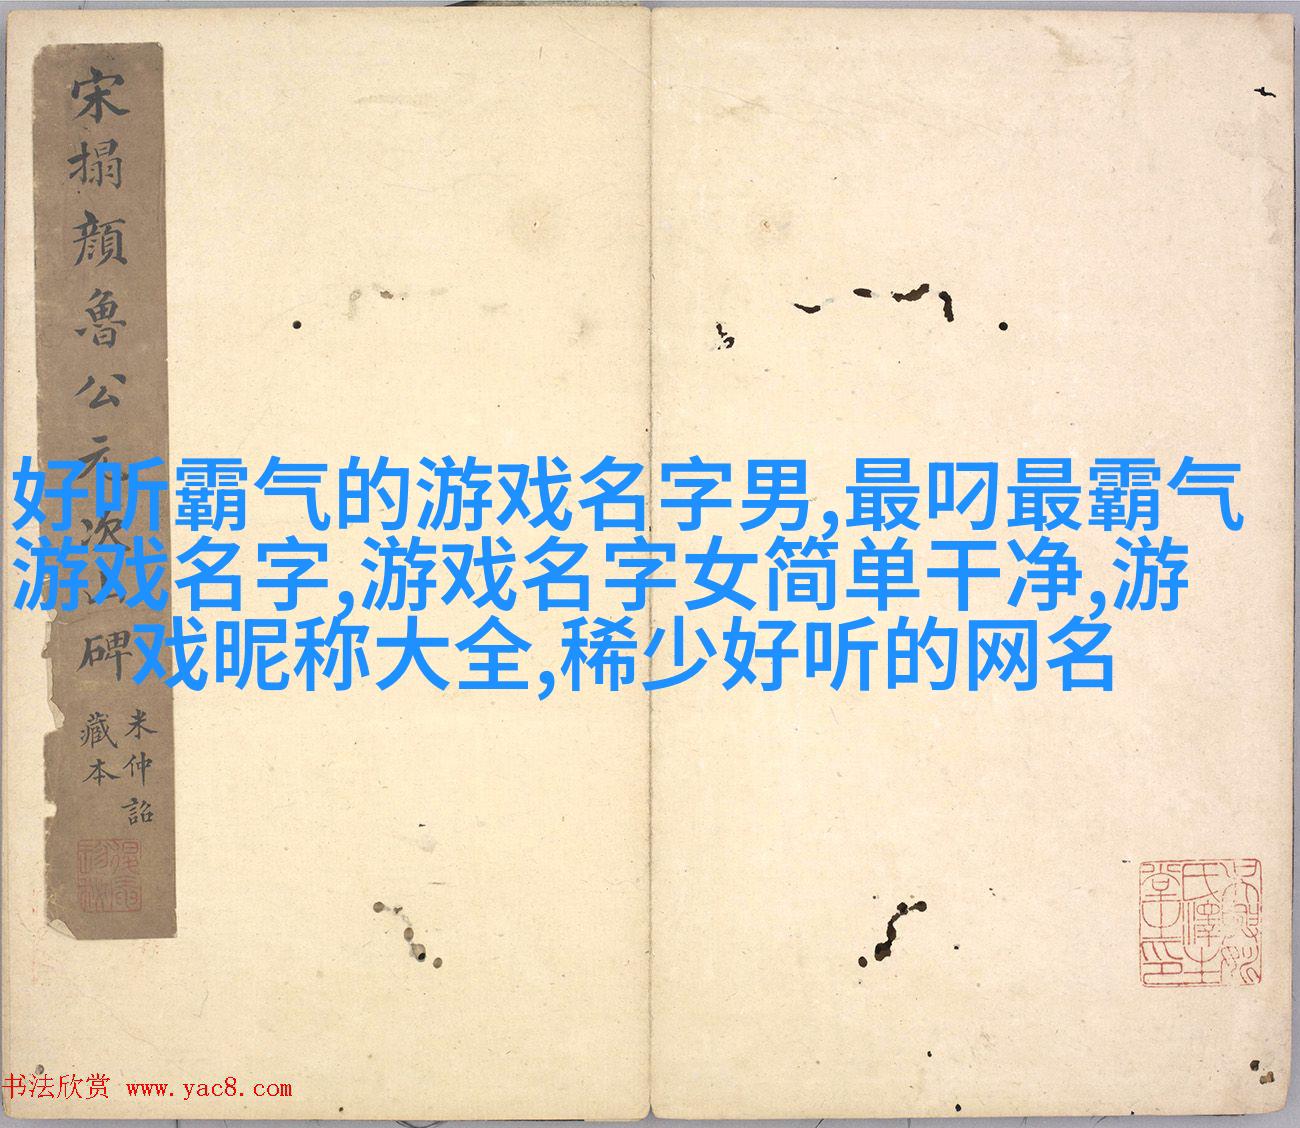 宋搨顔魯公元次山碑
米仲詔
藏本
好听霸气的游戏名字男,最叼最霸气
游戏名字,游戏名字女简单干净,游
戏昵称大全,稀少好听的网名
书法欣赏 www.yac8.com